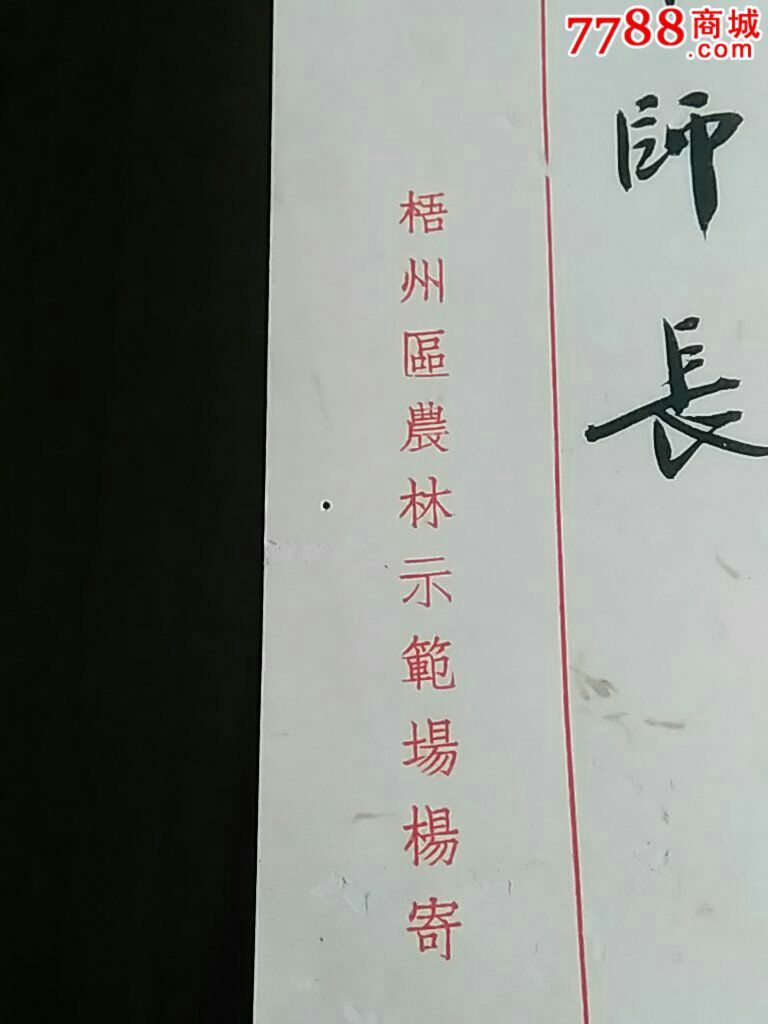 7788商城
.com
師長
梧州區農林示範場楊寄